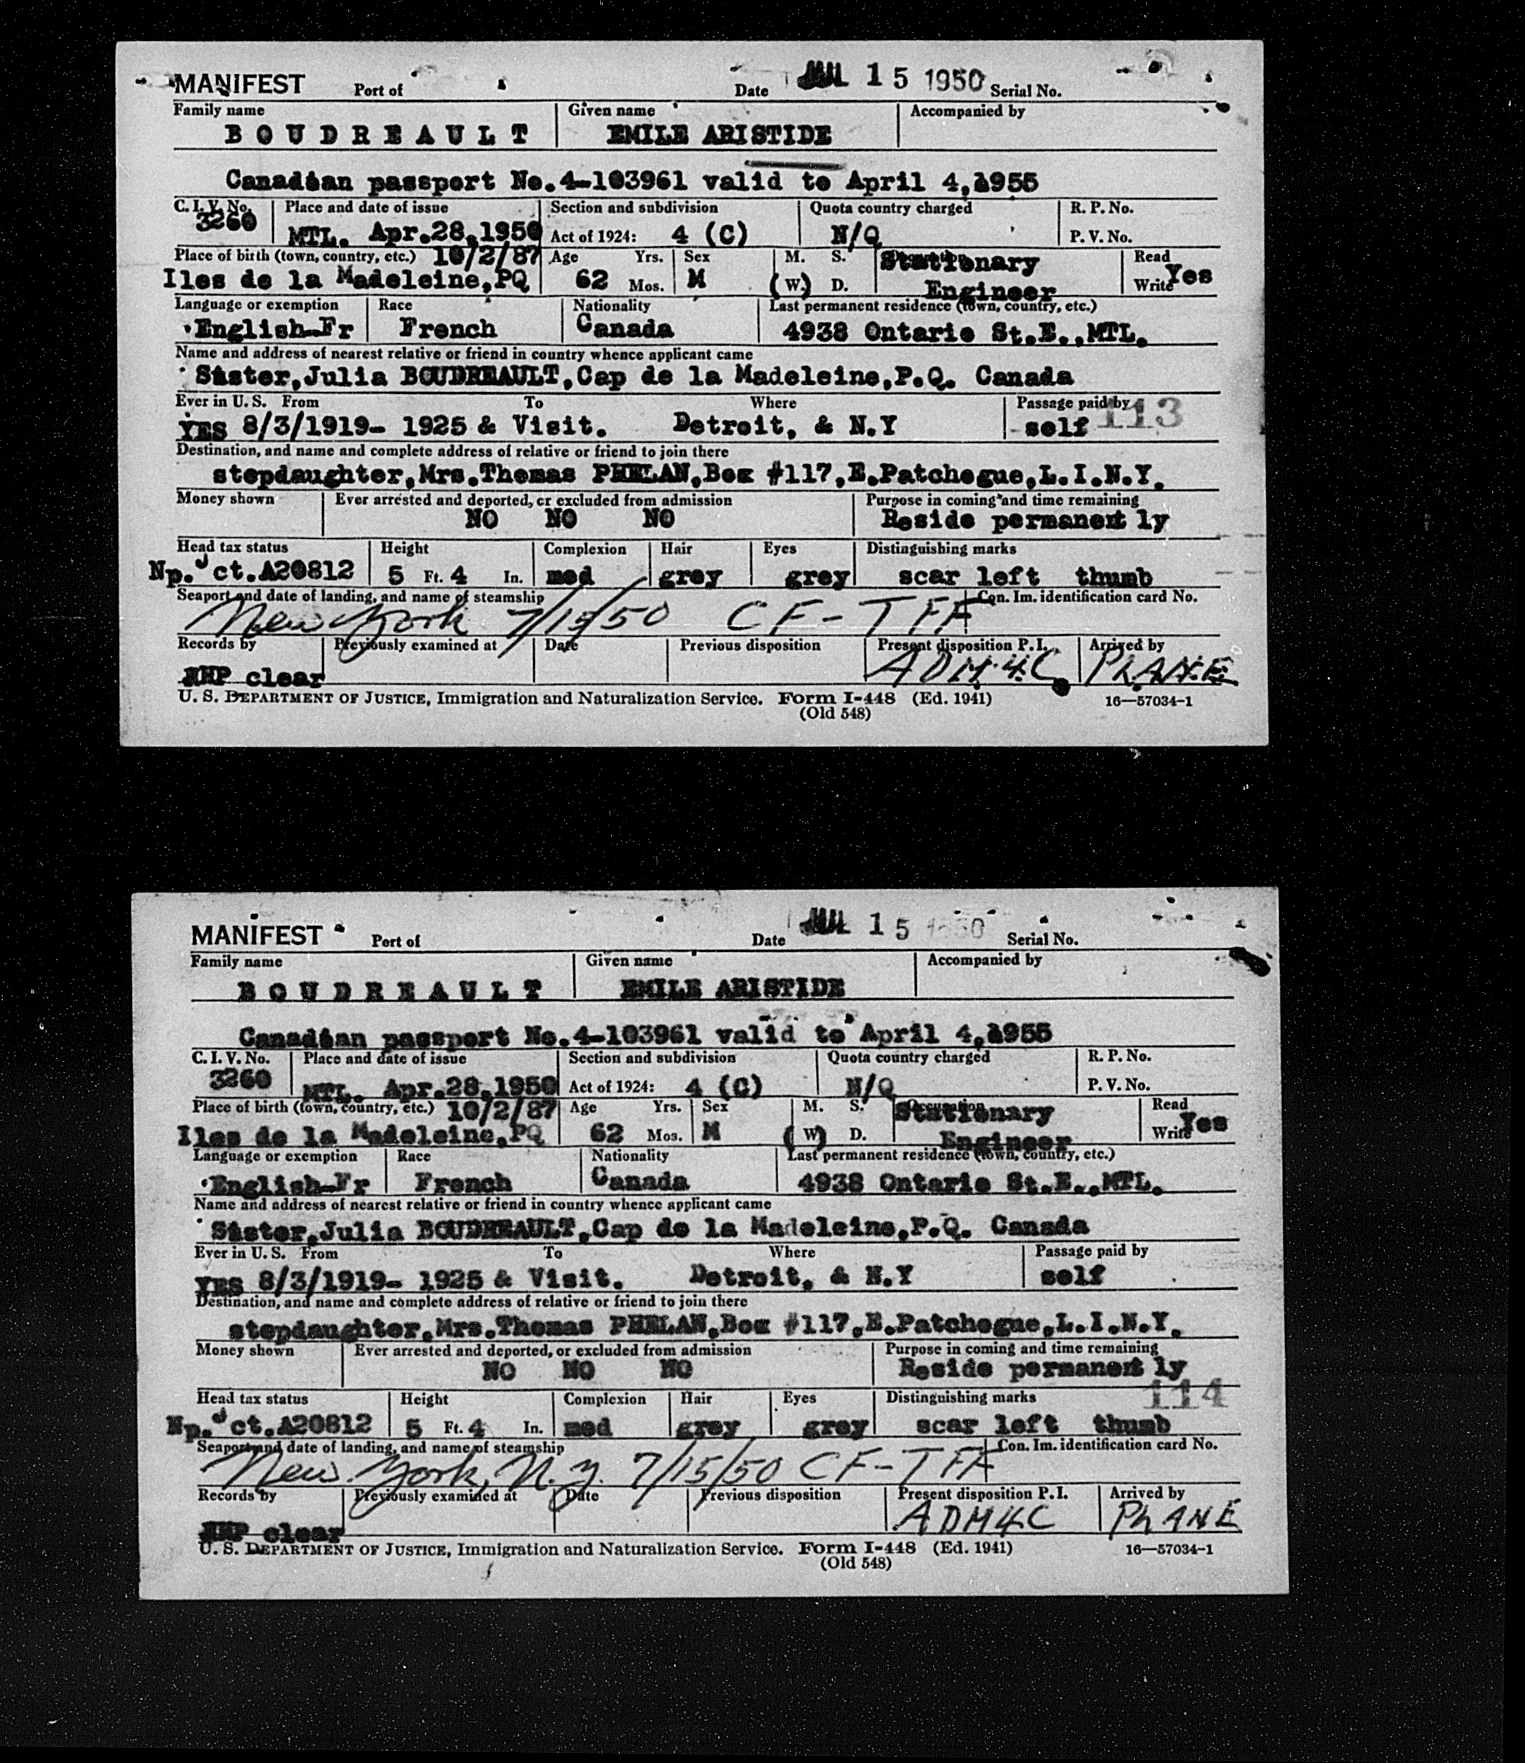 MANIFEST Port of Date JUL 15 1950 Serial No.
Family name Given name Accompanied by
BOUDREAULT EMILE ARISTIDE
Canadian passport No.4-103961 valid to April 4,1955
C. I. V. No. Place and date of issue Section and subdivision Quota country charged R. P. No.
3260 MTL. Apr.28,1950 Act of 1924: 4 (C) N/Q P. V. No.
Place of birth (town, country, etc.) 10/2/87 Age Yrs. Sex M. S. Stationary Read
Iles de la Madeleine,PQ 62 Mos. M (W.) D. Engineer Write Yes
Language or exemption Race Nationality Last permanent residence (town, country, etc.)
English-Fr French Canada 4938 Ontario St.E.,MTL.
Name and address of nearest relative or friend in country whence applicant came
Sister,Julia BOUDREAULT,Cap de la Madeleine,P.Q. Canada
Ever in U. S. From To Where Passage paid by 113
YES 8/3/1919- 1925 & Visit. Detroit, & N.Y self
Destination, and name and complete address of relative or friend to join there
stepdaughter,Mrs.Thomas PHELAN,Box #117,E.Patchogue,L.I.N.Y.
Money shown Ever arrested and deported, or excluded from admission Purpose in coming and time remaining
NO NO NO Reside permanent ly
Head tax status Height Complexion Hair Eyes Distinguishing marks
Np. ct.A20812 5 Ft. 4 In. med grey grey scar left thumb
Seaport and date of landing, and name of steamship Con. Im. identification card No.
New York 7/15/50 CF-TFF
Records by Previously examined at Date Previous disposition Present disposition P. I. Arrived by
clear ADM 4C PLANE
U. S. DEPARTMENT OF JUSTICE, Immigration and Naturalization Service. Form I-448 (Ed. 1941) 16—57034-1
(Old 548)
MANIFEST Port of Date JUL 15 1950 Serial No.
Family name Given name Accompanied by
BOUDREAULT EMILE ARISTIDE
Canadian passport No.4-103961 valid to April 4,1955
C. I. V. No. Place and date of issue Section and subdivision Quota country charged R. P. No.
3260 MTL. Apr.28,1950 Act of 1924: 4 (C) N/Q P. V. No.
Place of birth (town, country, etc.) 10/2/87 Age Yrs. Sex M. S. Occupation Stationary Read
Iles de la Madeleine,PQ 62 Mos. M (W) D. Engineer Write Yes
Language or exemption Race Nationality Last permanent residence (town, country, etc.)
English-Fr French Canada 4938 Ontario St.E.,MTL.
Name and address of nearest relative or friend in country whence applicant came
Sister,Julia BOUDREAULT,Cap de la Madeleine,P.Q. Canada
Ever in U. S. From To Where Passage paid by
YES 8/3/1919- 1925 & Visit. Detroit, & N.Y self
Destination, and name and complete address of relative or friend to join there
stepdaughter,Mrs.Thomas PHELAN,Box #117,E.Patchogue,L.I.N.Y.
Money shown Ever arrested and deported, or excluded from admission Purpose in coming and time remaining
NO NO NO Reside permanent ly
114
Head tax status Height Complexion Hair Eyes Distinguishing marks
Np. ct.A20812 5 Ft. 4 In. med grey grey scar left thumb
Seaport and date of landing, and name of steamship Con. Im. identification card No.
New York, N.Y. 7/15/50 CF-TFF
Records by Previously examined at Date Previous disposition Present disposition P. I. Arrived by
clear ADM 4C PLANE
U. S. DEPARTMENT OF JUSTICE, Immigration and Naturalization Service. Form I-448 (Ed. 1941) 16—57034-1
(Old 548)